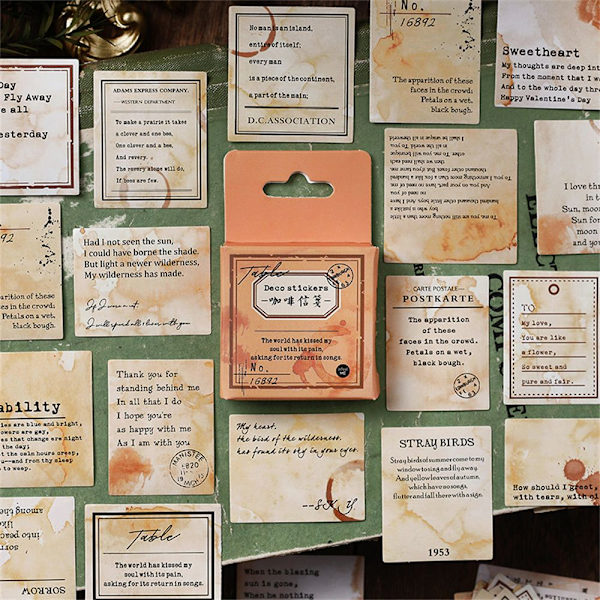 Day
Fly Away
e all
esterday
ADAMS EXPRESS COMPANY.
WESTERN DEPARTMENT
To make a prairie it takes
a clover and one bee,
One clover and a bee,
And revery.
The revery alone will do,
If bees are few.
No man is an island,
entire of itself;
every man
is a piece of the continent,
a part of the main;
D.C.ASSOCIATION
No.
16892
The apparition of these
faces in the crowd:
Petals on a wet,
black bough.
Sweetheart
My thoughts are deep into
From the moment that I wa
And to the whole day throu
Happy Valentine's Day
I love thr
in t
Sun, moon
Sun for
moon for
and
92
arition of these
n the crowd:
Petals on a wet,
black bough.
Had I not seen the sun,
I could have borne the shade.
But light a newer wilderness,
My wilderness has made.
Table
Deco stickers
咖啡信笺
The world has kissed my
soul with its pain,
asking for its return in songs.
No.
16892
CARTE POSTALE
POSTKARTE
The apparition
of these
faces in the crowd.
Petals on a wet,
black bough.
TO
My love,
You are like
a flower,
So sweet and
pure and fair.
ability
es are blue and bright,
owers are gay,
es that change ere night
the day;
t the calm hours creep,
u--and from thy sleep
to weep.
Thank you for
standing behind me
In all that I do
I hope you're
as happy with me
As I am with you
MANISTEE
My heart,
the bird of the wilderness,
has found its sky in your eyes.
--S.K.Y.
STRAY BIRDS
Stray birds of summer come to my
window to sing and fly away.
And yellow leaves of autumn,
which have no songs,
flutter and fall there with a sign.
1953
How should I greet,
with tears, with
SORROW
Table
The world has kissed my
soul with its pain,
asking for its return in songs.
When the blazing
sun is gone,
When he nothing